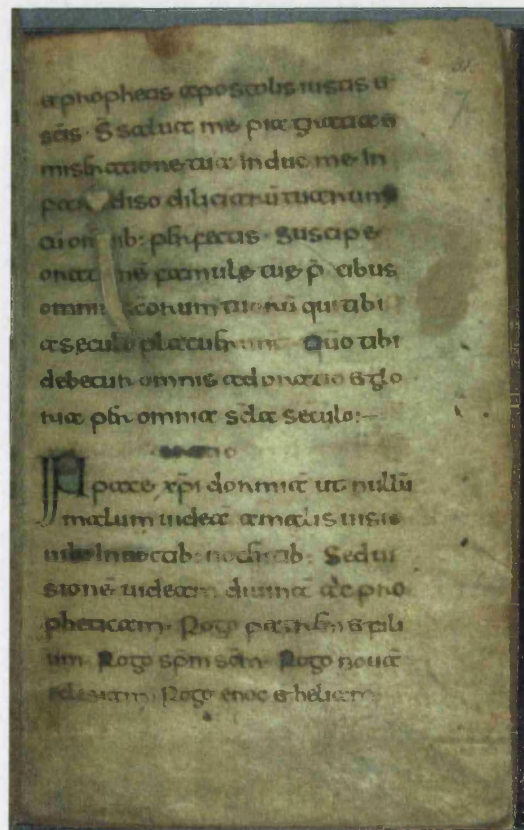 & prophetis apostolis iustis &
scīs · Et saluar me pia gratia &
misīratione tua induc me in
diso diliciarū tuarum
cū om ib: pfectis · Suscipe
famule tue p̄ cibus
omniū scorum tuorū qui tibi
a seculo placuerunt Qūo tibi
debetur omnis adoratio & glo
ria per omnia scła seculo:—
oratio
In pace xp̄i dormiā ut nullū
malum uideā a malis uisis
mihi in noctib: nocturnib: Sed ui
sionē uideam diuinā ac pro
pheticam · Rogo patrem & fili
um · Rogo sp̄m sc̄m · Rogo nouā
eclesiam · Rogo enoc & heliam
31
7